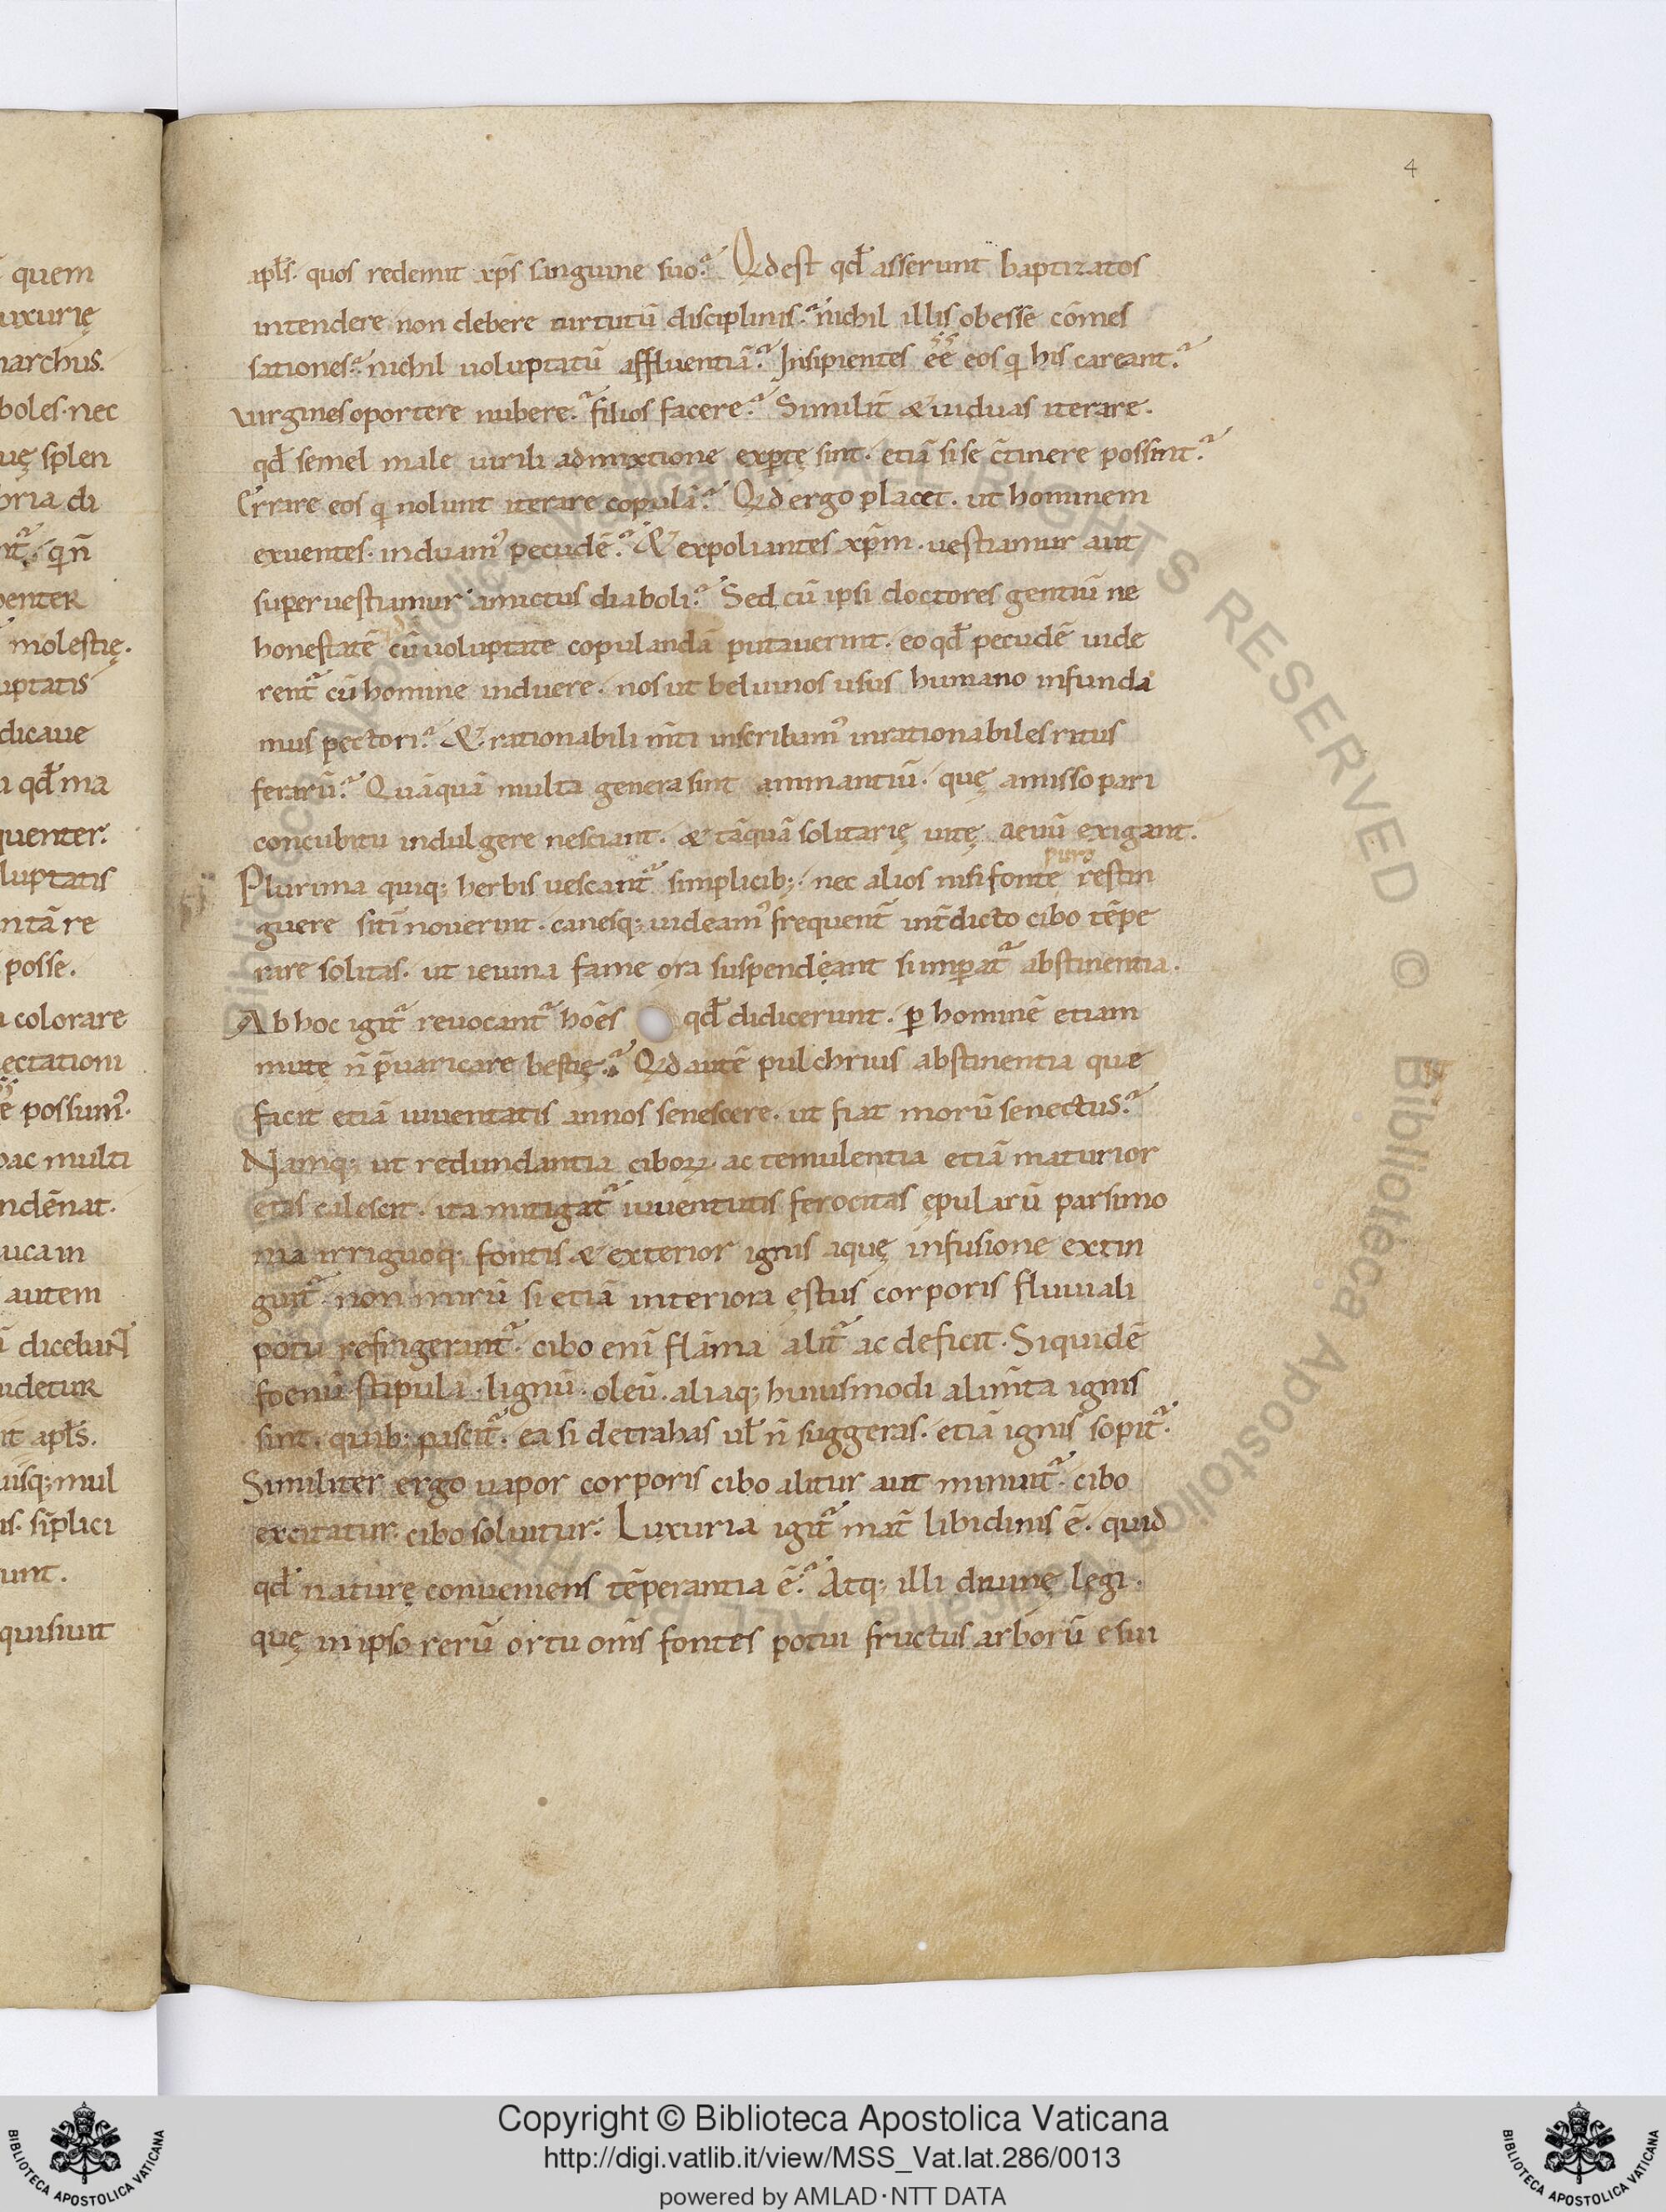 4
apl̄s. quos redemit xp̄s sanguine suo? Qd est qd̄ asserunt baptizatos
intendere non debere uirtutū disciplinis? nichil illis obesse cōmes
sationes? nichil uoluptatū affluentiā? Insipientes ēē eos q his careant?
uirgines oportere nubere? filios facere? Similit̄ & uiduas iterare.
qd̄ semel male uirili admixtione exp̄tę sint. etiā si se c̄tinere possint?
Errare eos q nolunt iterare copulā? Qd ergo placet. ut hominem
exuentes. induam᾿ pecudē? & expoliantes xp̄m. uestiamur aut
superuestiamur amictus diaboli? Sed cū ipsi doctores gentiū ne
honestatē cū uoluptate copulandā putauerint. eo qd̄ pecudē uide
rent᷑ cū homine induere. nos ut beluinos usus humano infunda
mus pectori? & rationabili m̄ti inscribim᾿ inrationabiles ritus
ferarū? Quāquā multa genera sint animantiū. quę amisso pari
concubitu indulgere nesciant. & tāquā solitarię uitę aeuū exigant.
puro
Plurima quiq; herbis uescant᷑ simplicib; nec alios nisi fonte restin
guere sitī nouerint. canesq; uideam᾿ frequent̄ int̄dicto cibo tēpe
rare solitas. ut ieiuna fame ora suspendeant si imp̄at᷑ abstinentia.
Ab hoc igit᷑ reuocant᷑ hōēs qd̄ didicerunt. p̱ hominē etiam
mutę n̄ p̄uaricare bestię? Qd autē pulchrius abstinentia que
facit etiā iuuentatis annos senescere. ut fiat morū senectus?
Namq; ut redundantia ciboꝝ. ac temulentia etiā maturior
etas calescit. ita mitigat᷑ iuuentutis ferocitas ępularū parsimo
nia irriguoq; fontis & exterior ignis aquę infusione extin
guit᷑ non mirū si etiā interiora ęstus corporis fluuiali
potu refrigerant᷑. cibo enī flāma alit᷑ ac deficit. Siquidē
foenū stipula. lignū. oleū. aliaq; huiusmodi alim̄ta ignis
sint. quib; pascit᷑. ea si detrahas ul̄ n̄ suggeras. etiā ignis sopit᷑.
Similiter ergo uapor corporis cibo alitur aut minuit᷑. cibo
excitatur. cibo soluitur. Luxuria igit᷑ mat̄ libidinis ē. quid
qd̄ naturę conueniens tēperantia ē? Atq; illi diuinę legi.
quę in ipso rerū ortu om̄s fontes potui fructus arborū esui
quem
uxurię
narchus.
boles. nec
uę splen
bria di
nt᷑. q n̄
penter
molestię.
uptatis
dicaue
qd̄ ma
quenter.
luptatis
ntā re
posse.
colorare
ectationi
possum᾿.
ac multi
ndēnat.
uca in
autem
dicebant
udetur
it apl̄s.
uisq; mul
is. sīplici
unt.
quisiuit
Copyright © Biblioteca Apostolica Vaticana
http://digi.vatlib.it/view/MSS_Vat.lat.286/0013
powered by AMLAD·NTT DATA
BIBLIOTECA APOSTOLICA VATICANA
BIBLIOTECA APOSTOLICA VATICANA
© Biblioteca Apostolica Vaticana ALL RIGHTS RESERVED